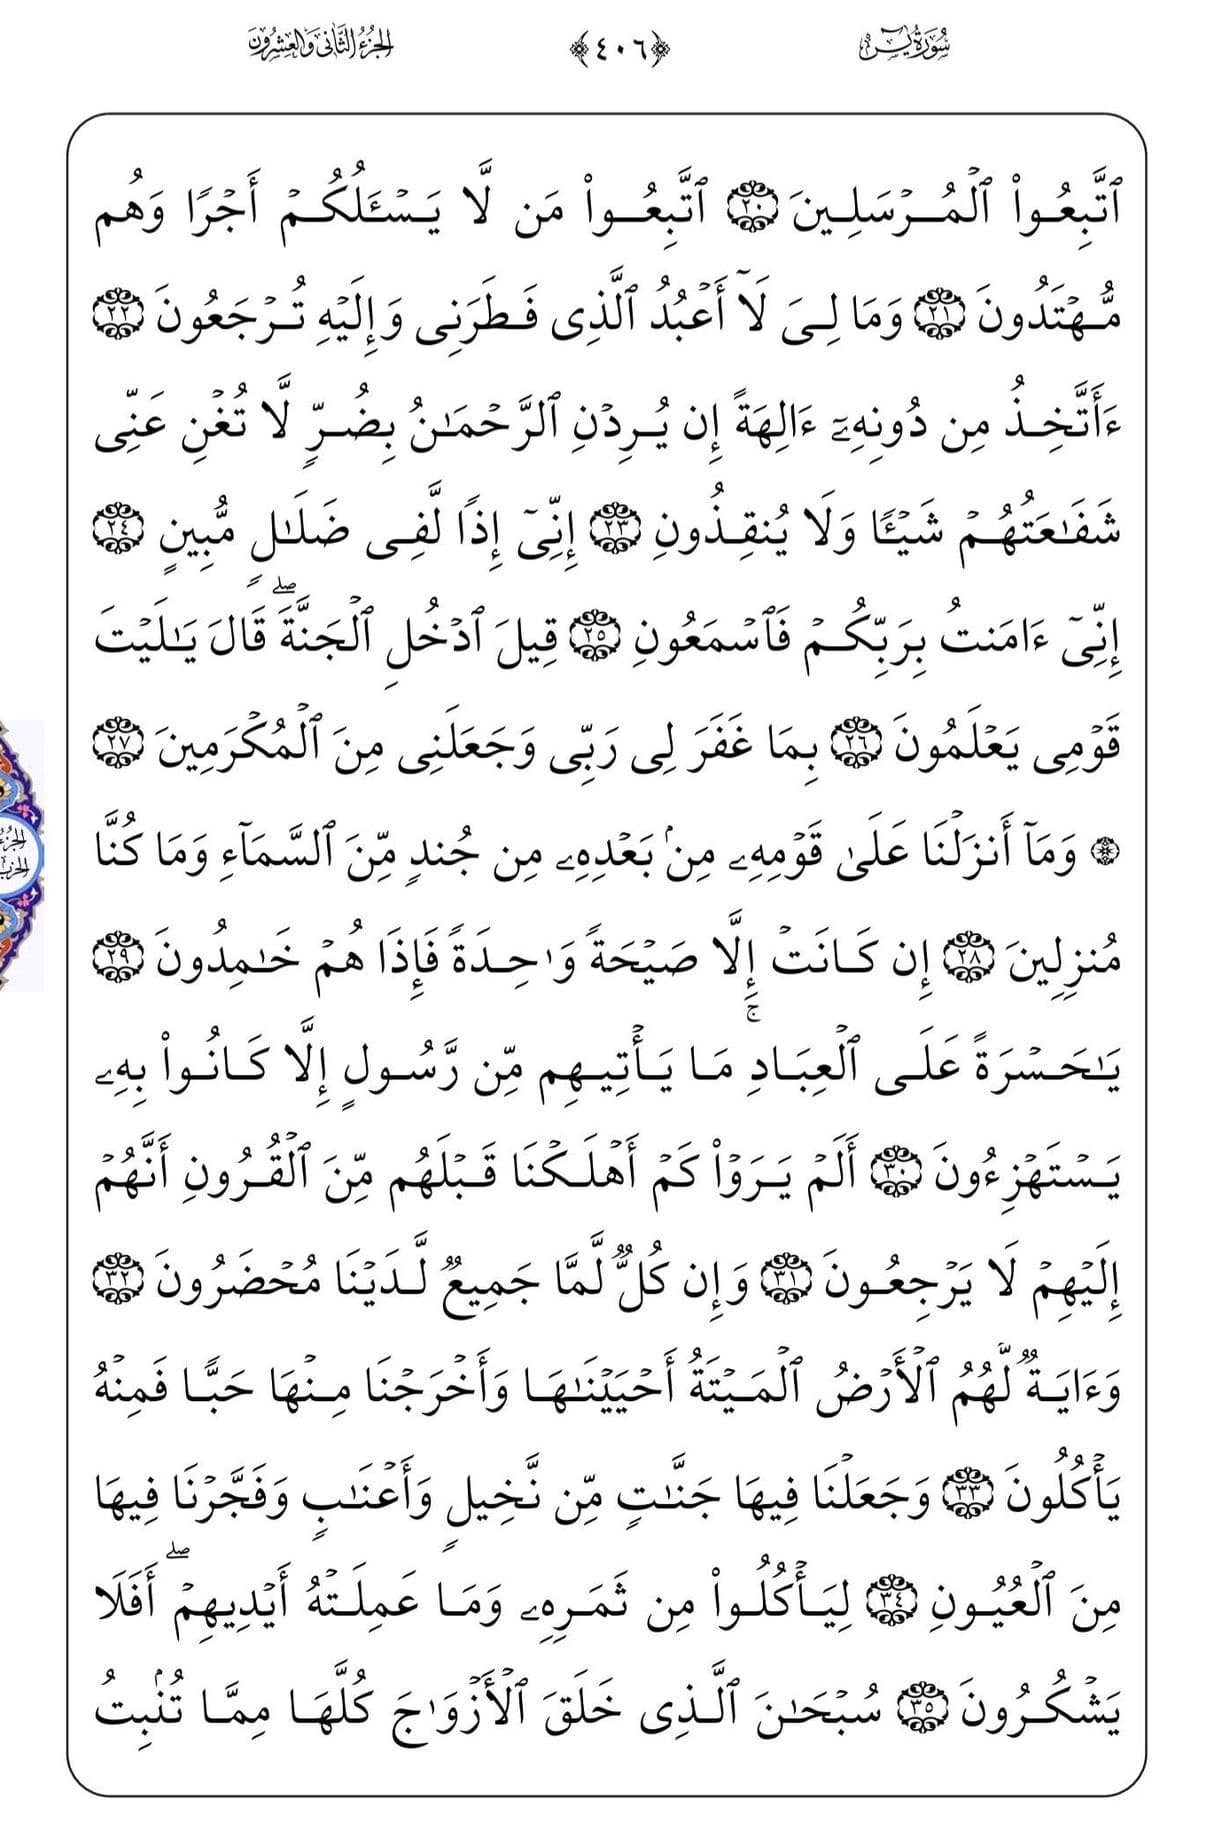 سُورَةُ يسٓ ﴿٤٠٦﴾ الجُزْءُ الثَّانِي وَالعِشْرُونَ
ٱتَّبِعُواْ ٱلۡمُرۡسَلِينَ ٢٠ ٱتَّبِعُواْ مَن لَّا يَسۡـَٔلُكُمۡ أَجۡرٗا وَهُم
مُّهۡتَدُونَ ٢١ وَمَا لِىَ لَآ أَعۡبُدُ ٱلَّذِى فَطَرَنِى وَإِلَيۡهِ تُرۡجَعُونَ ٢٢
ءَأَتَّخِذُ مِن دُونِهِۦٓ ءَالِهَةً إِن يُرِدۡنِ ٱلرَّحۡمَٰنُ بِضُرّٖ لَّا تُغۡنِ عَنِّى
شَفَٰعَتُهُمۡ شَيۡـٔٗا وَلَا يُنقِذُونِ ٢٣ إِنِّىٓ إِذٗا لَّفِى ضَلَٰلٖ مُّبِينٍ ٢٤
إِنِّىٓ ءَامَنتُ بِرَبِّكُمۡ فَٱسۡمَعُونِ ٢٥ قِيلَ ٱدۡخُلِ ٱلۡجَنَّةَۖ قَالَ يَٰلَيۡتَ
قَوۡمِى يَعۡلَمُونَ ٢٦ بِمَا غَفَرَ لِى رَبِّى وَجَعَلَنِى مِنَ ٱلۡمُكۡرَمِينَ ٢٧
۞ وَمَآ أَنزَلۡنَا عَلَىٰ قَوۡمِهِۦ مِنۢ بَعۡدِهِۦ مِن جُندٖ مِّنَ ٱلسَّمَآءِ وَمَا كُنَّا
مُنزِلِينَ ٢٨ إِن كَانَتۡ إِلَّا صَيۡحَةٗ وَٰحِدَةٗ فَإِذَا هُمۡ خَٰمِدُونَ ٢٩
يَٰحَسۡرَةً عَلَى ٱلۡعِبَادِۚ مَا يَأۡتِيهِم مِّن رَّسُولٍ إِلَّا كَانُواْ بِهِۦ
يَسۡتَهۡزِءُونَ ٣٠ أَلَمۡ يَرَوۡاْ كَمۡ أَهۡلَكۡنَا قَبۡلَهُم مِّنَ ٱلۡقُرُونِ أَنَّهُمۡ
إِلَيۡهِمۡ لَا يَرۡجِعُونَ ٣١ وَإِن كُلّٞ لَّمَّا جَمِيعٞ لَّدَيۡنَا مُحۡضَرُونَ ٣٢
وَءَايَةٞ لَّهُمُ ٱلۡأَرۡضُ ٱلۡمَيۡتَةُ أَحۡيَيۡنَٰهَا وَأَخۡرَجۡنَا مِنۡهَا حَبّٗا فَمِنۡهُ
يَأۡكُلُونَ ٣٣ وَجَعَلۡنَا فِيهَا جَنَّٰتٖ مِّن نَّخِيلٖ وَأَعۡنَٰبٖ وَفَجَّرۡنَا فِيهَا
مِنَ ٱلۡعُيُونِ ٣٤ لِيَأۡكُلُواْ مِن ثَمَرِهِۦ وَمَا عَمِلَتۡهُ أَيۡدِيهِمۡۖ أَفَلَا
يَشۡكُرُونَ ٣٥ سُبۡحَٰنَ ٱلَّذِى خَلَقَ ٱلۡأَزۡوَٰجَ كُلَّهَا مِمَّا تُنۢبِتُ